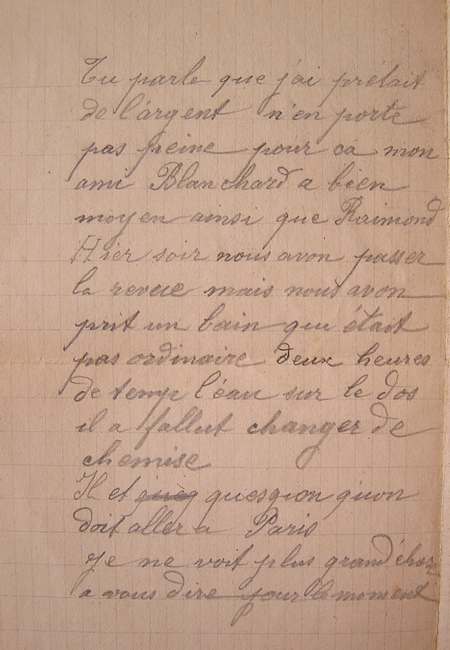 Tu parle que j'ai prétait
de l'argent n'en porte
pas peine pour ca mon
ami Blanchard a bien
moyen ainsi que Raimond
Hier soir nous avon passer
la revue mais nous avon
prit un bain qui était
pas ordinaire deux heures
de temp l'eau sur le dos
il a fallut changer de
chemise
Il et quesqion qu'on
doit aller a Paris
Je ne voit plus grand chos
a vous dire pour le moment